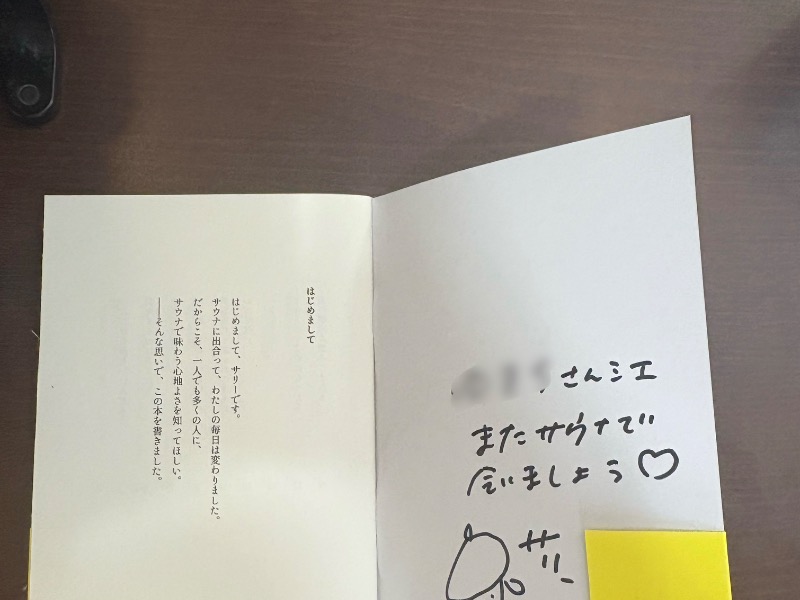 さんシエ
またサウナで
会いましょう♡
サリー
はじめまして
はじめまして、サリーです。
サウナに出合って、わたしの毎日は変わりました。
だからこそ、一人でも多くの人に、
サウナで味わう心地よさを知ってほしい。
――そんな思いで、この本を書きました。